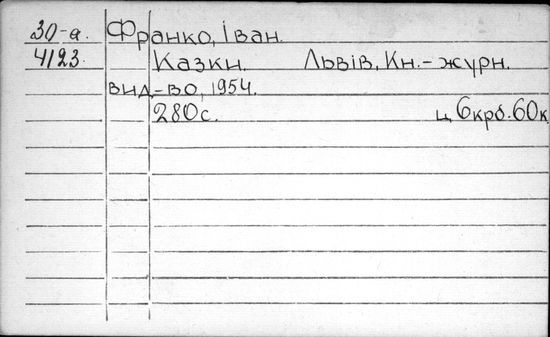 30-а. Франко, Іван.
4123. Казки. Львів, Кн.-журн.
вид-во, 1954.
280с. ц. 6крб. 60к